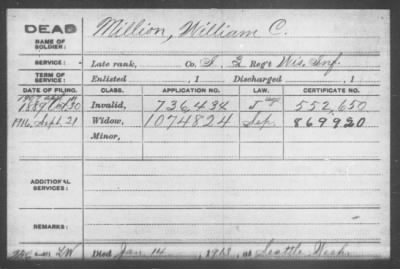 DEAD
NAME OF SOLDIER: Million, William C.
SERVICE: Late rank, Co. I, Reg't Wis. Inf.
TERM OF SERVICE: Enlisted , 1 Discharged , 1
DATE OF FILING. CLASS. APPLICATION NO. LAW. CERTIFICATE NO.
1889 Oct. 30 Invalid, 736,434 552,650
1916, Sept. 21 Widow, 1074824 Sep. 869920
Minor,
ADDITIONAL SERVICES:
REMARKS:
Died Jan. 14, at Seattle, Wash.